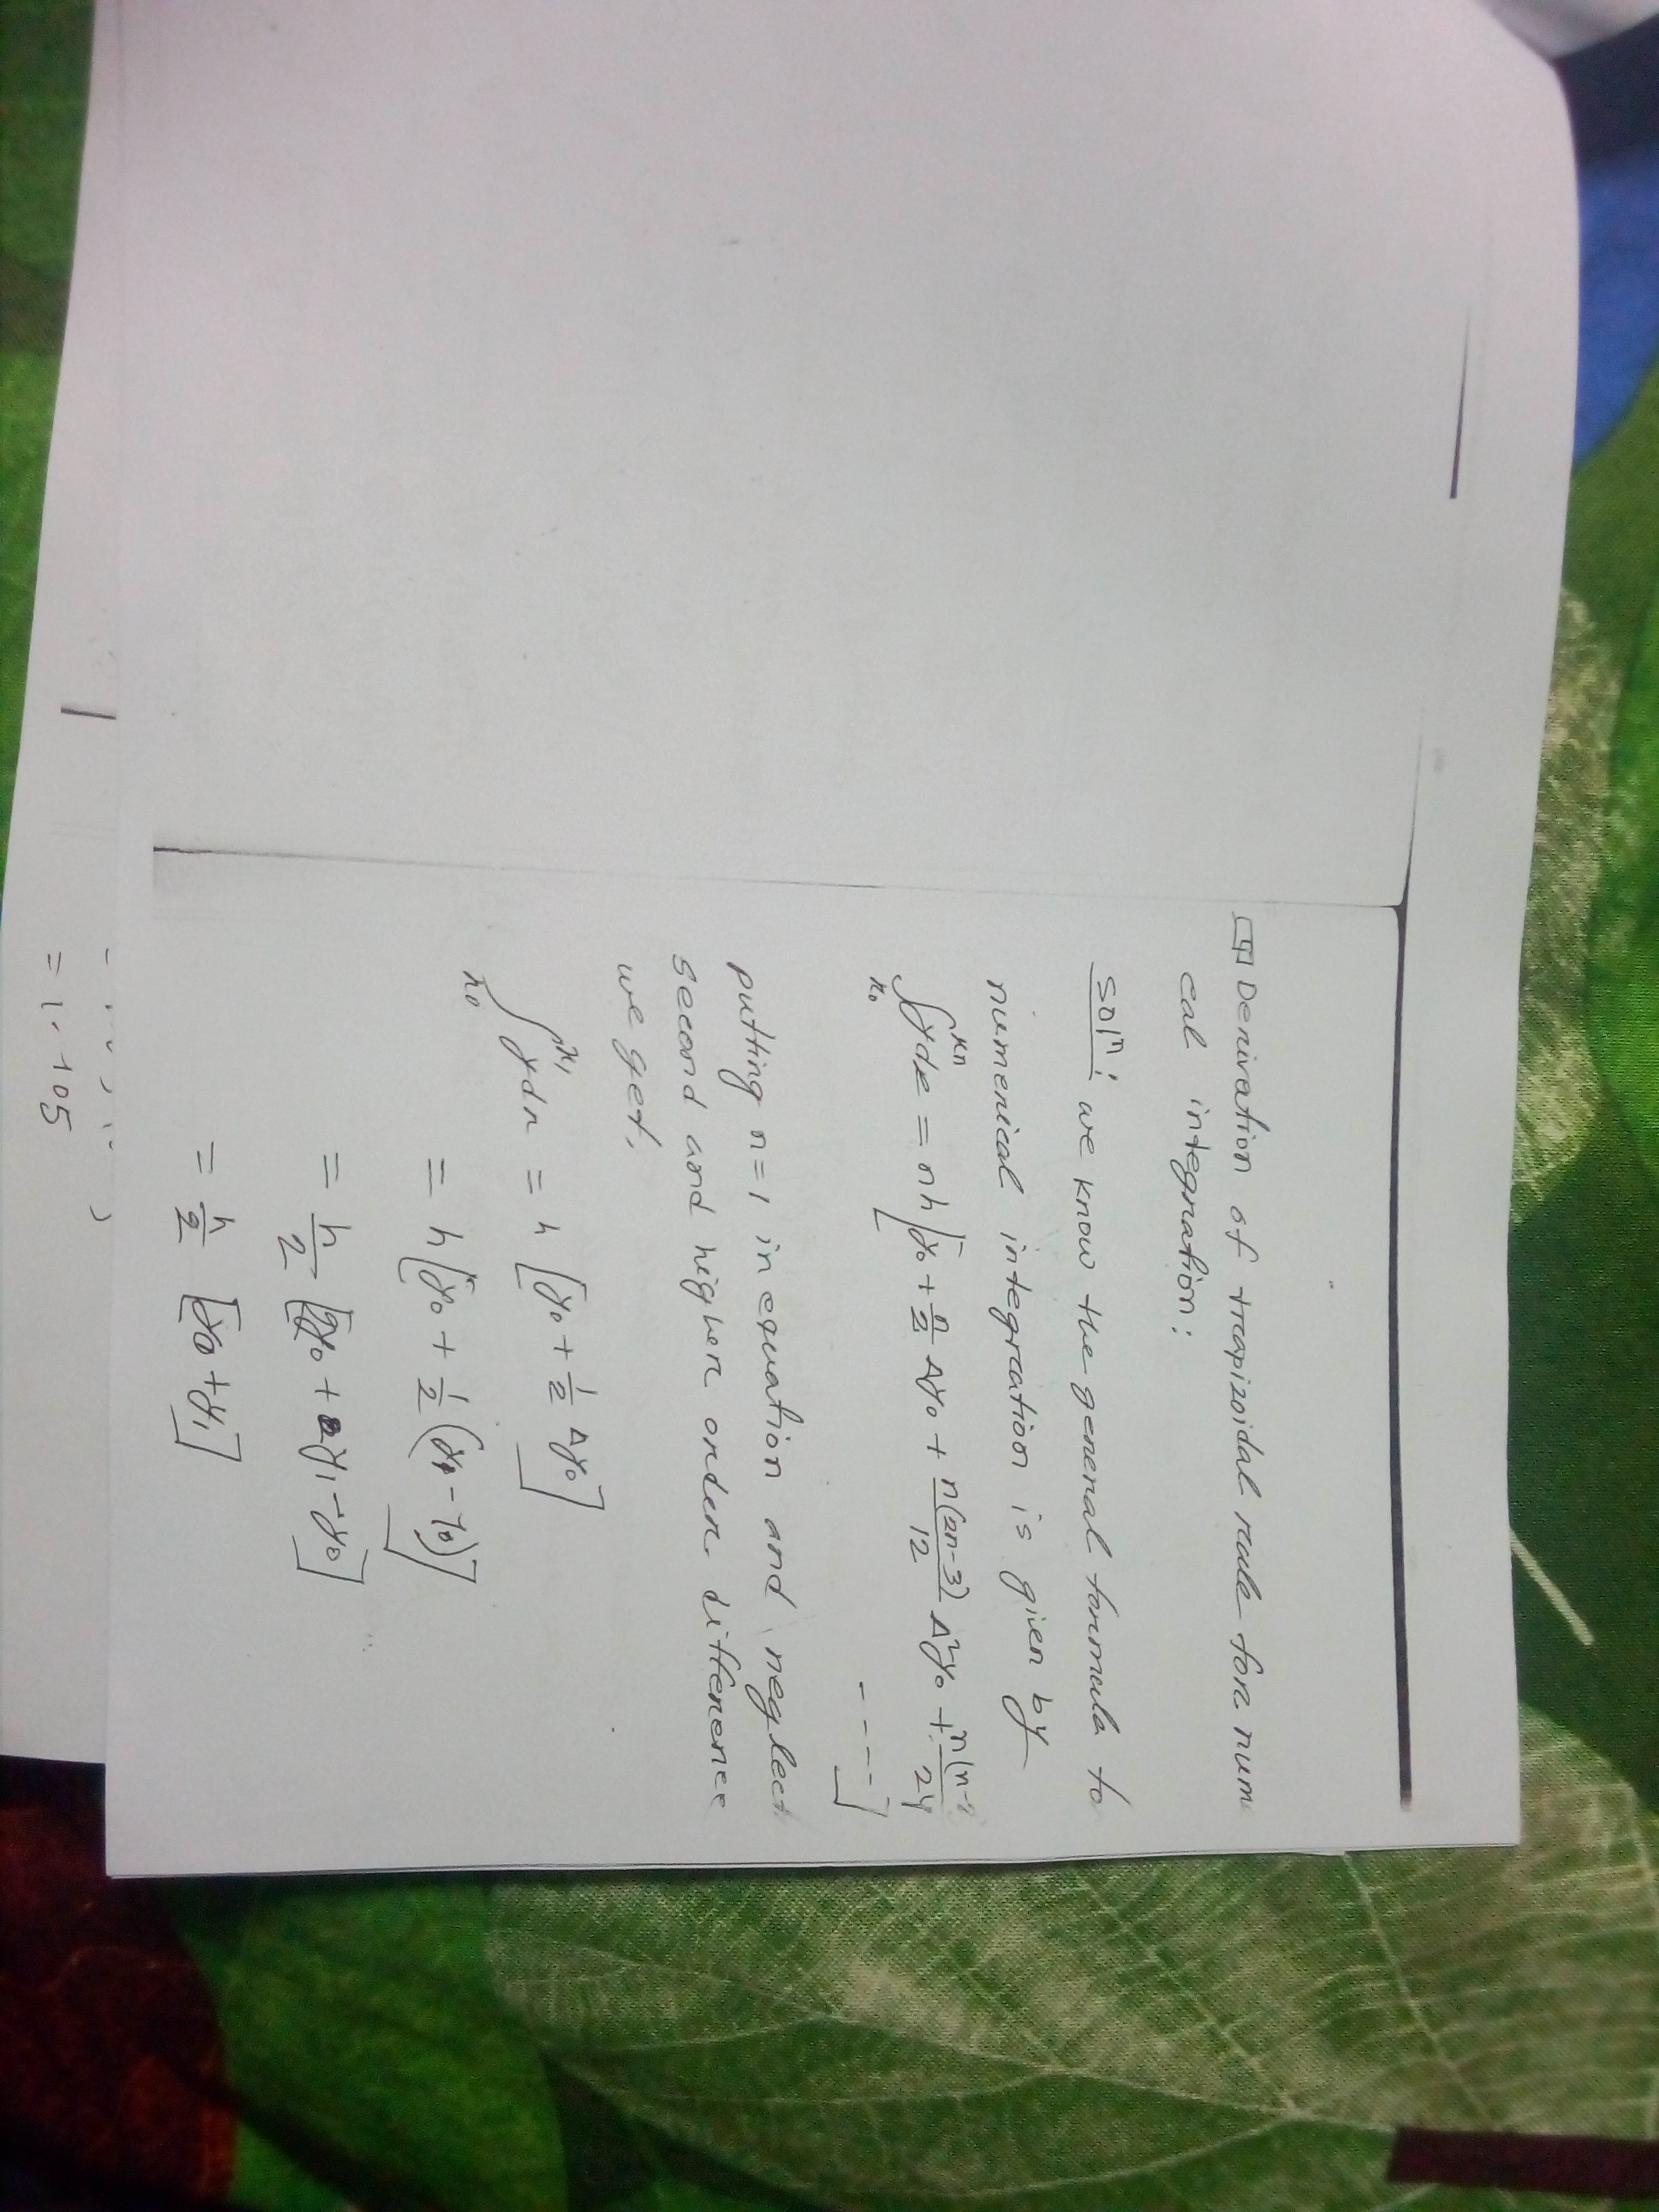 Derivation of trapizoidal rule for num
cal integration:
solⁿ: we know the general formula fo
numerical integration is given by
∫_{x₀}^{xₙ} y dx = nh [y₀ + n/2 Δy₀ + n(2n-3)/12 Δ²y₀ + n(n-2/24
----]
putting n=1 in equation and neglect
second and higher order difference
we get,
∫_{x₀}^{x₁} y dx = h [y₀ + 1/2 Δy₀]
= h [y₀ + 1/2 (y₁ - y₀)]
= h/2 [2y₀ + y₁ - y₀]
= h/2 [y₀ + y₁]
= 1.105